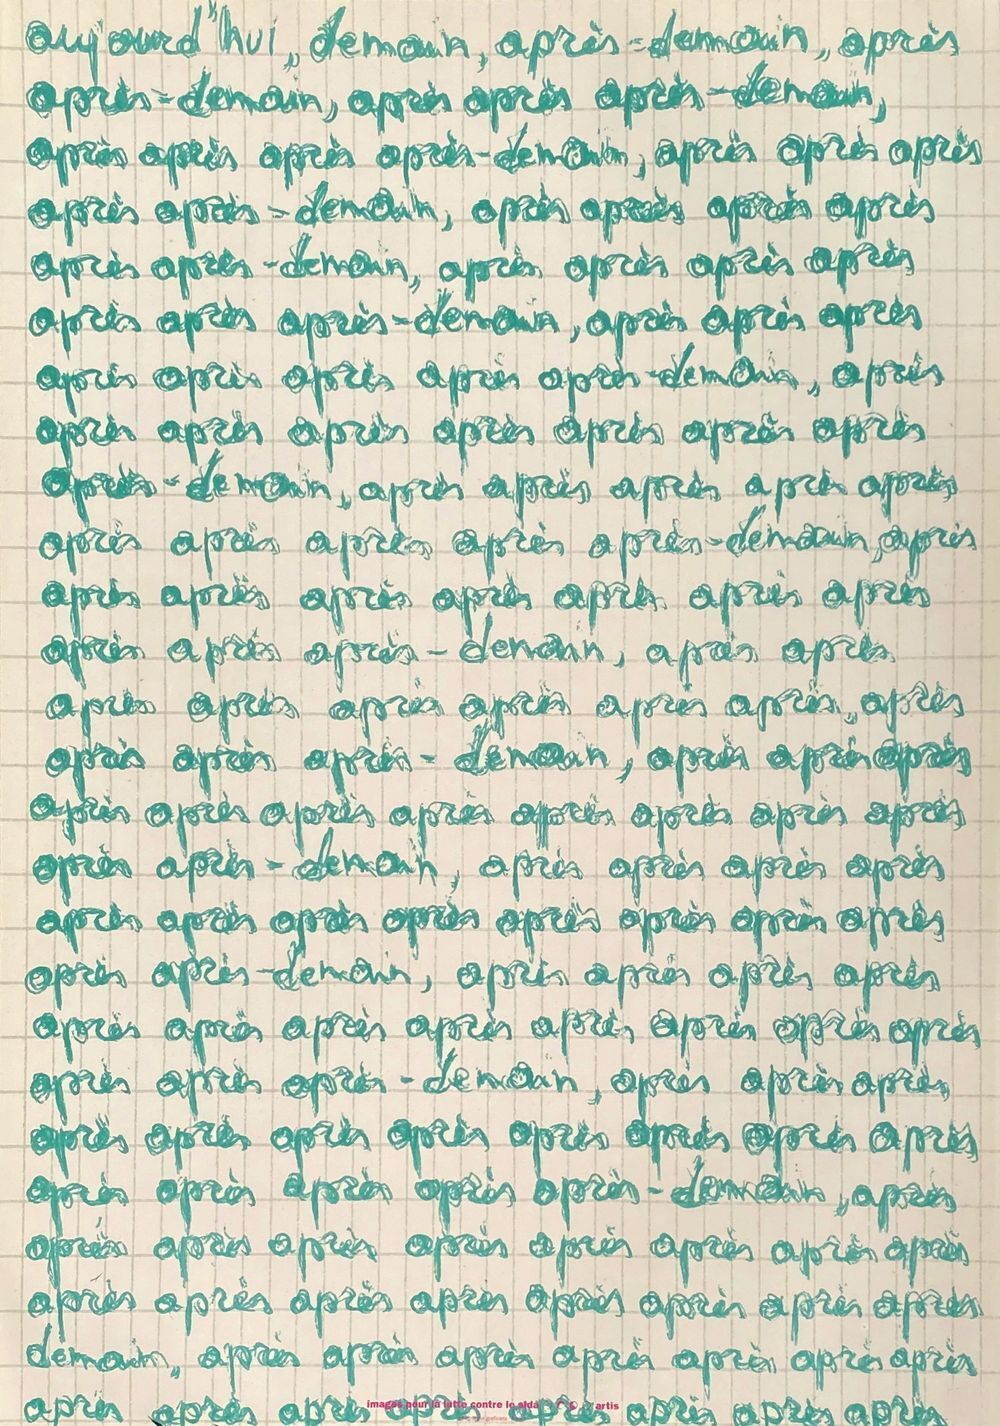 aujourd'hui, demain, après-demain, après
après-demain, après après après-demain,
après après après après-demain, après après après
après après-demain, après après après après
après après-demain, après après après après
après après après-demain, après après après
après après après après après-demain, après
après après après après après après après
après-demain, après après après après après
après après après après après-demain, après
après après après après après après après
après après après-demain, après après
après après après après après après, après
après après après-demain, après après après
après après après après après après après après
après après-demain, après après après après
après après après après après après après après
après après-demain, après après après après
après après après après après après après après
après après après-demain, après après après
après après après après après après après après
après après après après après-demain, après
après après après après après après après après
après après après après après après après après
demain, après après après après après après après
après après après après après après après après
images pour la lutte contre le sida artis